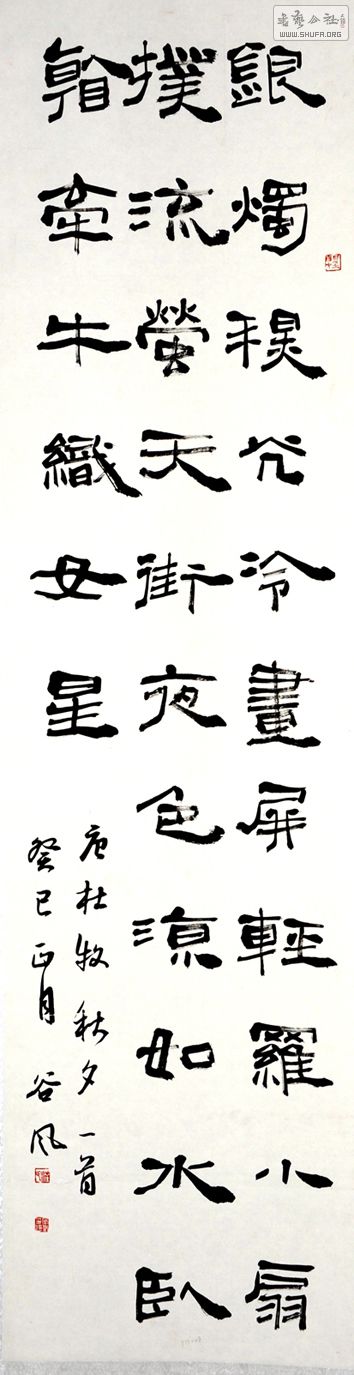 書藝公社
WWW.SHUFA.ORG
銀燭秋光冷畫屏輕羅小扇
撲流螢天街夜色涼如水臥
看牽牛織女星
唐杜牧秋夕一首
癸巳正月谷风